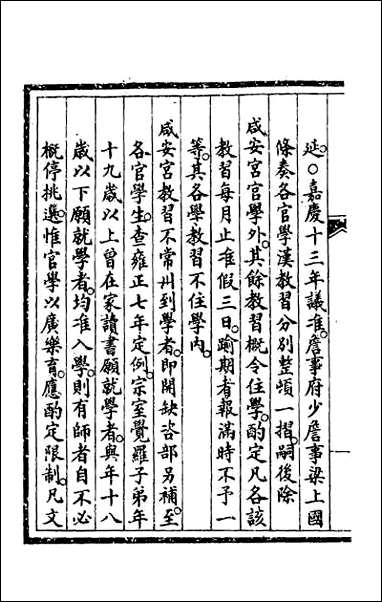 延○嘉慶十三年議准詹事府少詹事梁上國
條奏各官學漢教習分别整頓一摺嗣後除
咸安宮官學外其餘教習概令住學酌定凡各該
教習每月止准假三日踰期者報滿時不予一
等其各學教習不住學内
咸安宮教習不常川到學者即開缺咨部另補至
各官學生查雍正七年定例宗室覺羅子弟年
十九歲以上曾在家讀書願就學者與年十八
歲以下願就學者均准入學則有師者自不必
概停挑選惟官學以廣樂育應酌定限制凡文